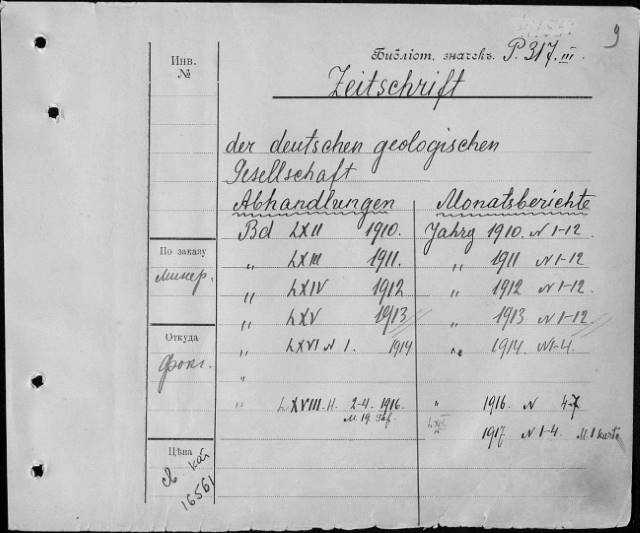 9
Инв.
№
Библіот. значекъ. P. 317. III.
Zeitschrift
der deutschen geologischen
Gesellschaft
Abhandlungen Monatsberichte
Bd LXII 1910. Jahrg 1910. N 1-12
„ LXIII 1911. „ 1911 N 1-12
По заказу
Минер.
„ LXIV 1912 „ 1912 N 1-12
„ LXV 1913 „ 1913 N 1-12
Откуда
Фокс.
„ LXVI N 1. 1914 „ 1914. N 1-4.
„
„ LXVIII. H. 2-4. 1916. „ 1916. N 4-7
M. 19 Taf.
„ 1917. N 1-4. M. 1 karte
Цѣна
кат
16561